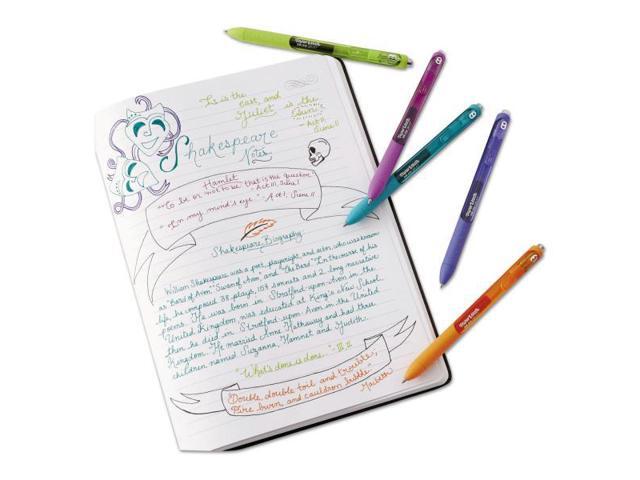 "It is the
east, and
Juliet is the
Sun"
- Act II,
Scene II
Shakespeare
Notes
Hamlet
"To be or not to be that is the question"
- Act III, Scene I
"In my mind's eye" - Act I, Scene II
Shakespeare Biography
William Shakespeare was a poet, playwright and actor, who was known
as "Bard of Avon" "Swan of Avon" and "The Bard" In the course of his
life, he composed 38 plays, 154 sonnets and 2 long narrative
poems. He was born in Stratford-upon-Avon in the
United Kingdom, was educated at King's New School
then he died in Stratford-upon-Avon in the United
Kingdom. He married Anne Hathaway and had three
children named Suzanna, Hamnet and Judith.
"What's done is done." - III.II
"Double, double toil and trouble,
Fire burn, and cauldron bubble"
Macbeth